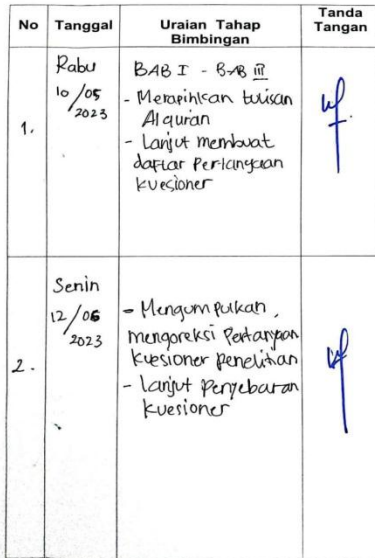 No Tanggal Uraian Tahap Bimbingan Tanda Tangan
1. Rabu 10/05 2023
BAB I - BAB III
- Merapihkan tulisan
Alquran
- Lanjut membuat
daftar Pertanyaan
kuesioner
2. Senin 12/06 2023
- Mengumpulkan,
mengoreksi Pertanyaan
kuesioner penelitian
- Lanjut Penyebaran
kuesioner